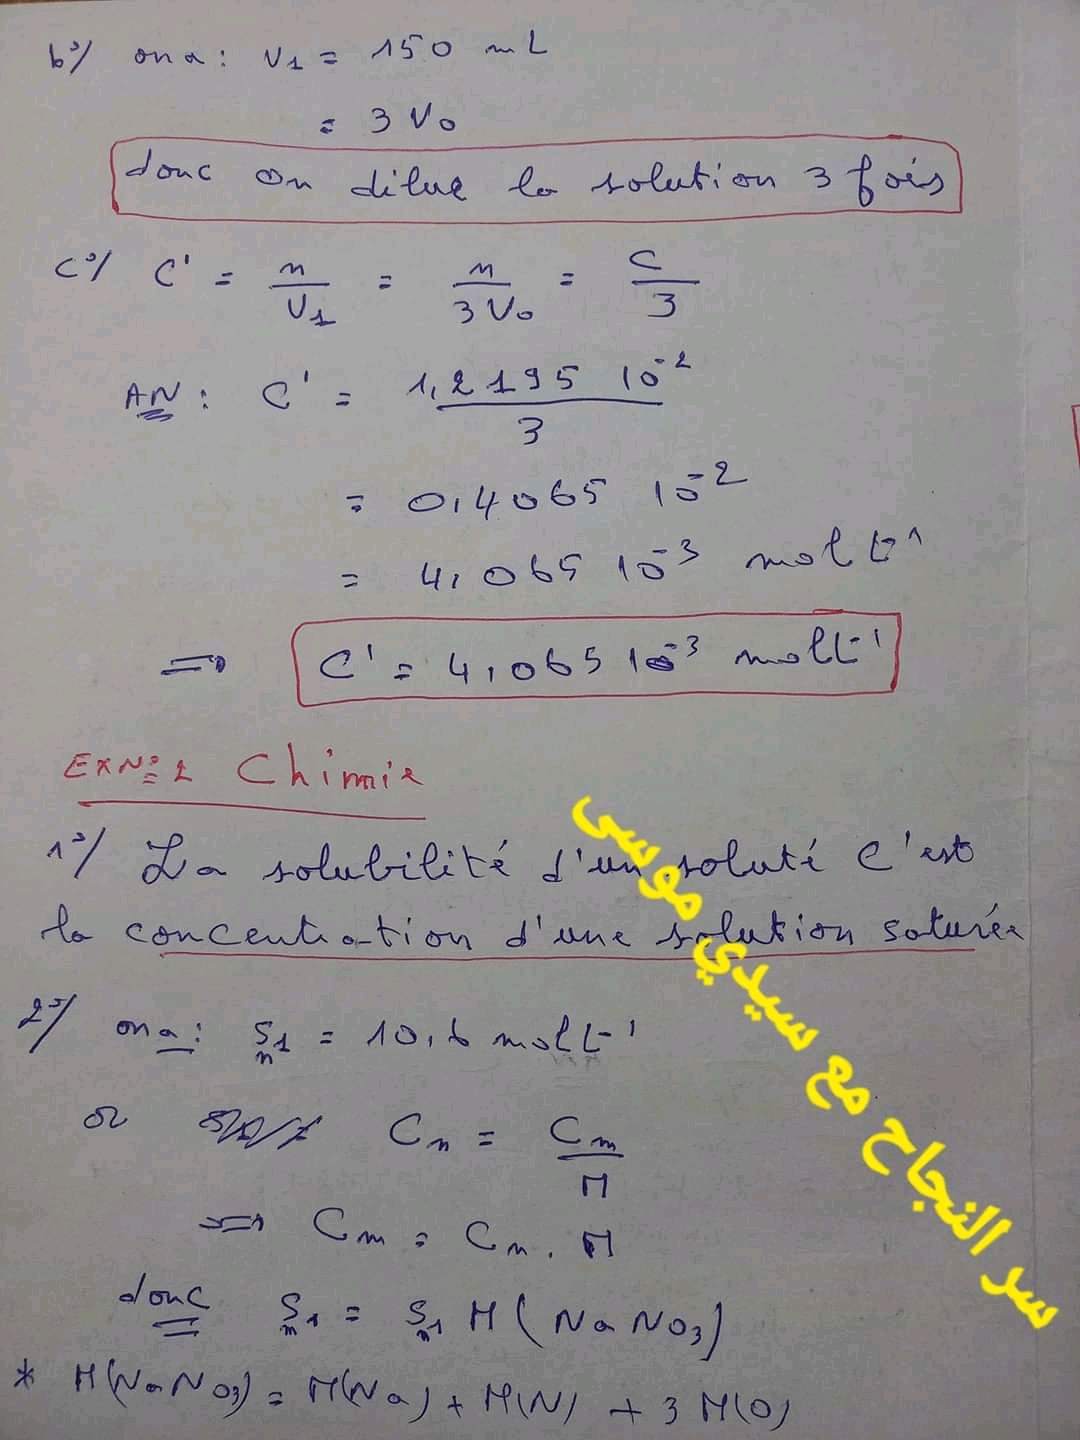 b°/ on a : V₁ = 150 mL
= 3 V₀
donc on dilue la solution 3 fois
c°/ C' = n/V₁ = n/3V₀ = C/3
AN : C' = 1,2195 10⁻²/3
= 0,4065 10⁻²
= 4,065 10⁻³ mol L⁻¹
⇒ C' = 4,065 10⁻³ mol L⁻¹
EXN°=2 Chimie
1°/ La solubilité d'un soluté C'est
la concentration d'une solution saturée
2°/ on a : Sₙ1 = 10,6 mol L⁻¹
or Cₙ = Cₘ/M
⇒ Cₘ = Cₙ . M
donc Sₘ1 = Sₙ1 M(NaNO₃)
* M(NaNO₃) = M(Na) + M(N) + 3 M(O)
سر النجاح مع سيدي موسى